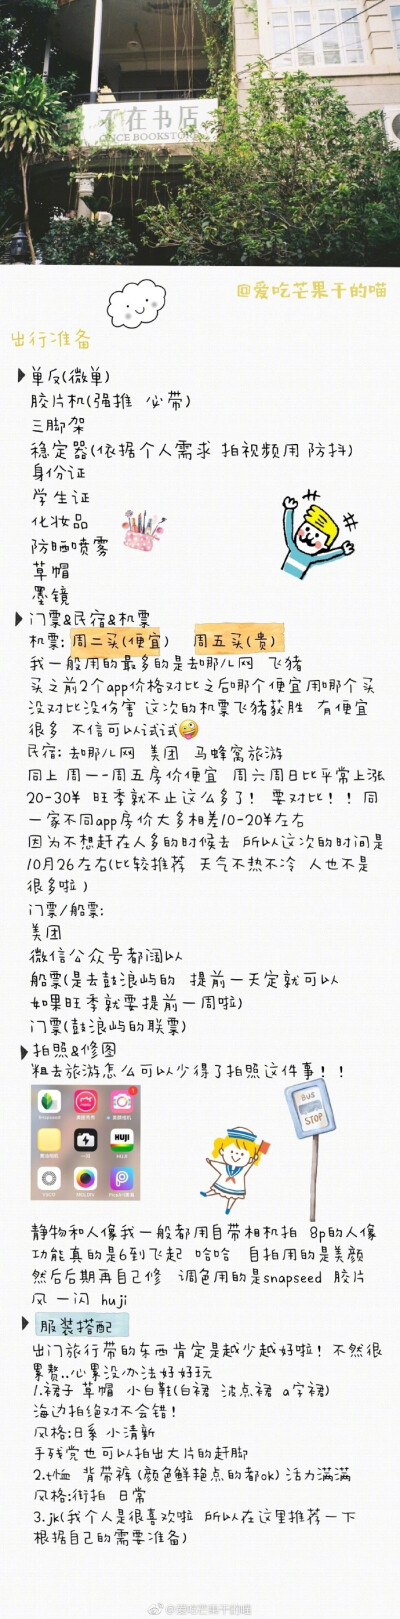 不在书店
ONCE BOOKSTORE
@爱吃芒果干的喵
出行准备
单反(微单)
胶片机(强推 必带)
三脚架
稳定器(依据个人需求 拍视频用 防抖)
身份证
学生证
化妆品
防晒喷雾
草帽
墨镜
门票&民宿&机票
机票: 周二买(便宜) 周五买(贵)
我一般用的最多的是去哪儿网 飞猪
买之前2个app价格对比之后哪个便宜用哪个买
没对比没伤害 这次的机票飞猪获胜 有便宜
很多 不信可以试试
民宿: 去哪儿网 美团 马蜂窝旅游
同上 周一--周五房价便宜 周六周日比平常上涨
20-30¥ 旺季就不止这么多了! 要对比!! 同
一家不同app房价大多相差10-20¥左右
因为不想赶在人多的时候去 所以这次的时间是
10月26左右(比较推荐 天气不热不冷 人也不是
很多啦)
门票/船票:
美团
微信公众号都阔以
船票(是去鼓浪屿的 提前一天定就可以
如果旺季就要提前一周啦)
门票(鼓浪屿的联票)
拍照&修图
粗去旅游怎么可以少得了拍照这件事!!
Snapseed
HUJI
VSCO
MOLDIV
BUS
STOP
静物和人像我一般都用自带相机拍 8p的人像
功能真的是6到飞起 哈哈 自拍用的是美颜
然后后期再自己修 调色用的是snapseed 胶片
风 一闪 huji
服装搭配
出门旅行带的东西肯定是越少越好啦! 不然很
累赘..心累没办法好好玩
1.裙子 草帽 小白鞋(白裙 波点裙 a字裙)
海边拍绝对不会错!
风格:日系 小清新
手残党也可以拍出大片的赶脚
2.t恤 背带裤 (颜色鲜艳点的都ok) 活力满满
风格:街拍 日常
3.jk(我个人是很喜欢啦 所以在这里推荐一下
根据自己的需要准备)
@爱吃芒果干的喵